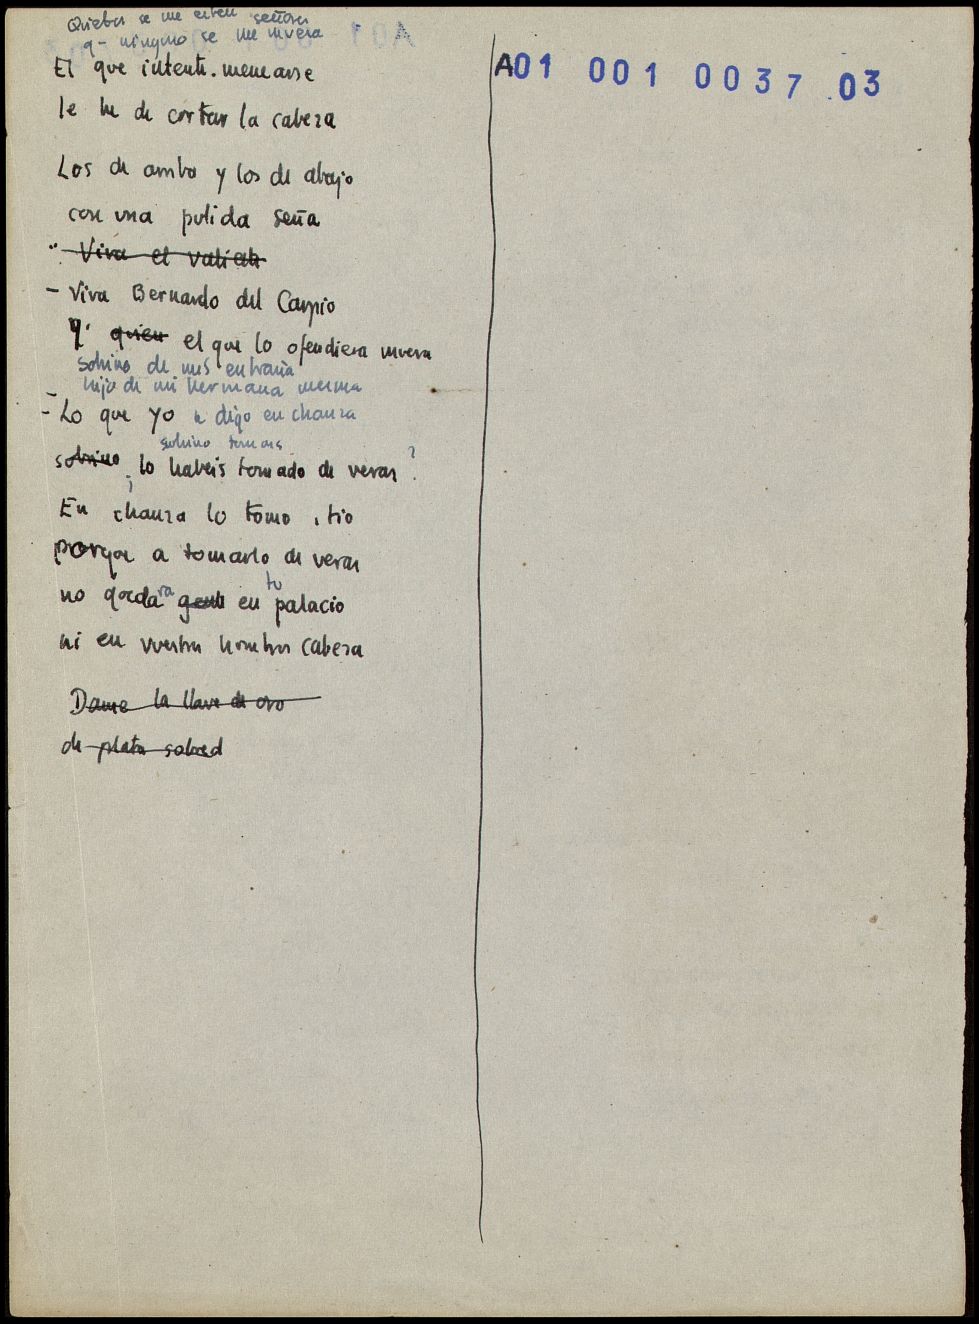 Quietos se me esten señores
q- ninguno se me mueva
El que intente menearse
le he de cortar la cabeza
Los de arriba y los de abajo
con una pulida seña
"- Viva el valiente
- Viva Bernardo del Carpio
y quien el que lo ofendiera muera
Sobrino de mis entrañas
hijo de mi hermana mesma
- Lo que yo digo en chanza
sobrino tomais
sobrino ¿lo habeis tomado de veras?
En chanza lo tomo, tio
porque a tomarlo de veras
tu
no quedara gente en palacio
ni en vuestros hombros cabeza
Dame la llave de oro
de plata
A01 001 0037 03